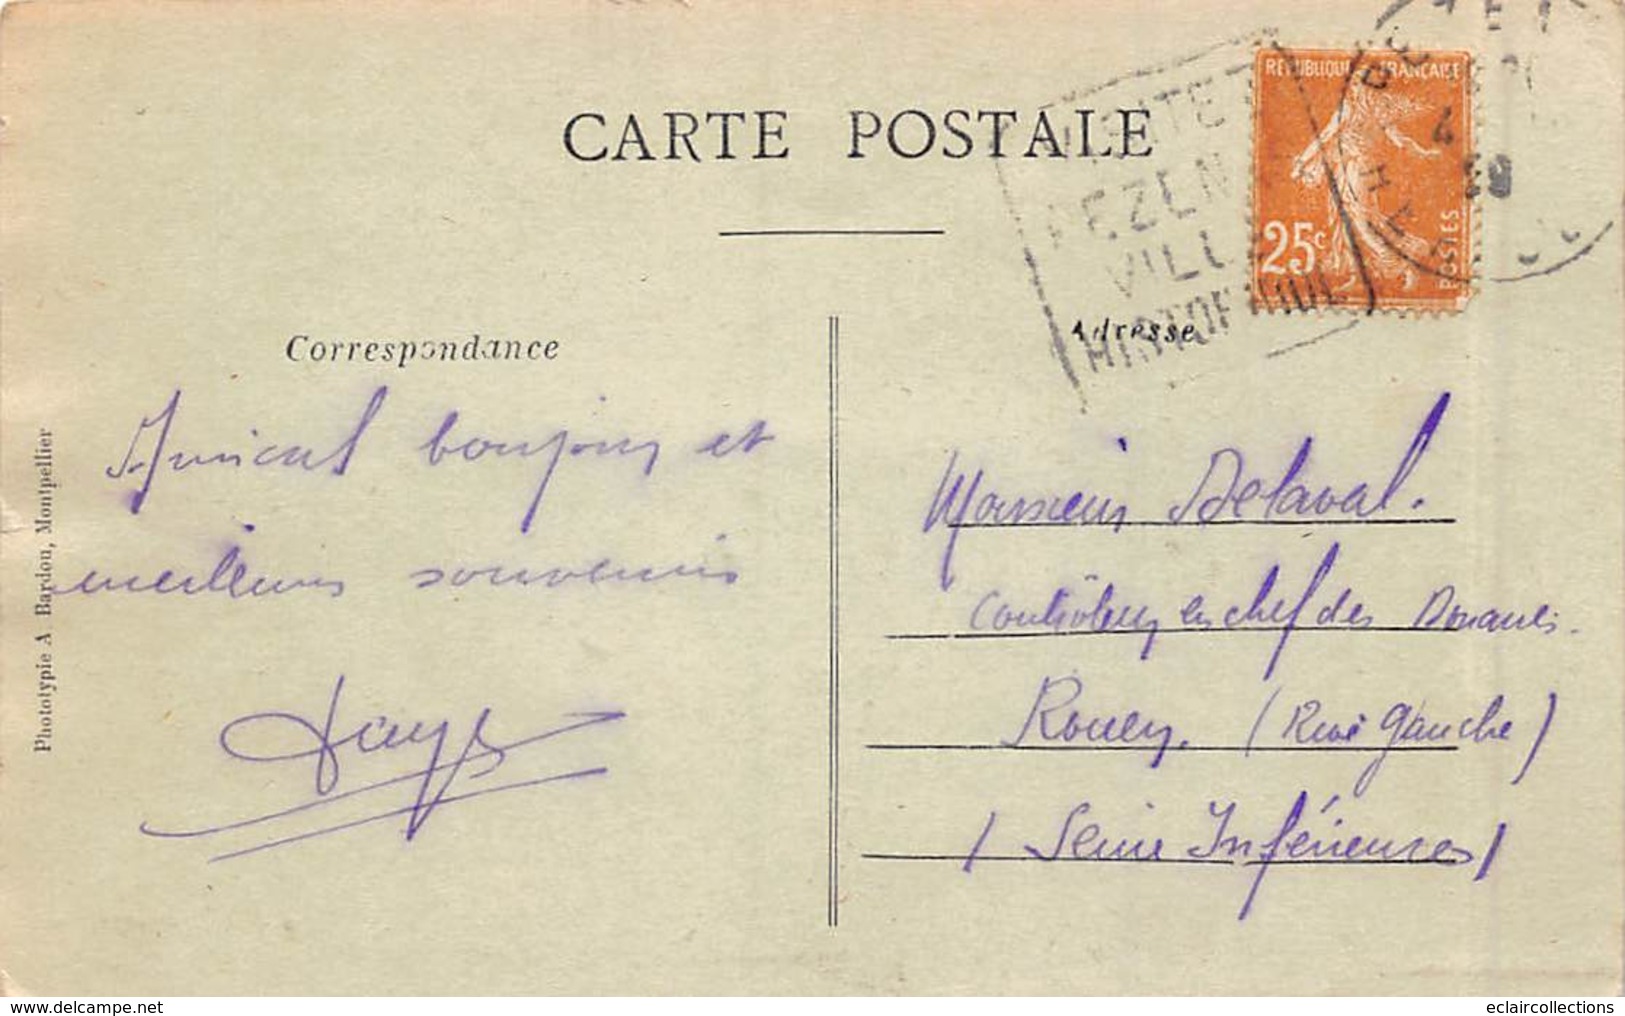 CARTE POSTALE
REPUBLIQUE FRANCAISE
25c
POSTES
PEZEN
VILL
HISTORIQUE
4
HER
Correspondance
Adresse
Amical bonjour et
meilleurs souvenirs
Monsieur Delaval.
Contrôleur en chef des Douanes.
Rouen. (Rive gauche)
(Seine Inférieures)
Phototypie A Bardou, Montpellier
www.delcampe.net
eclaircollections